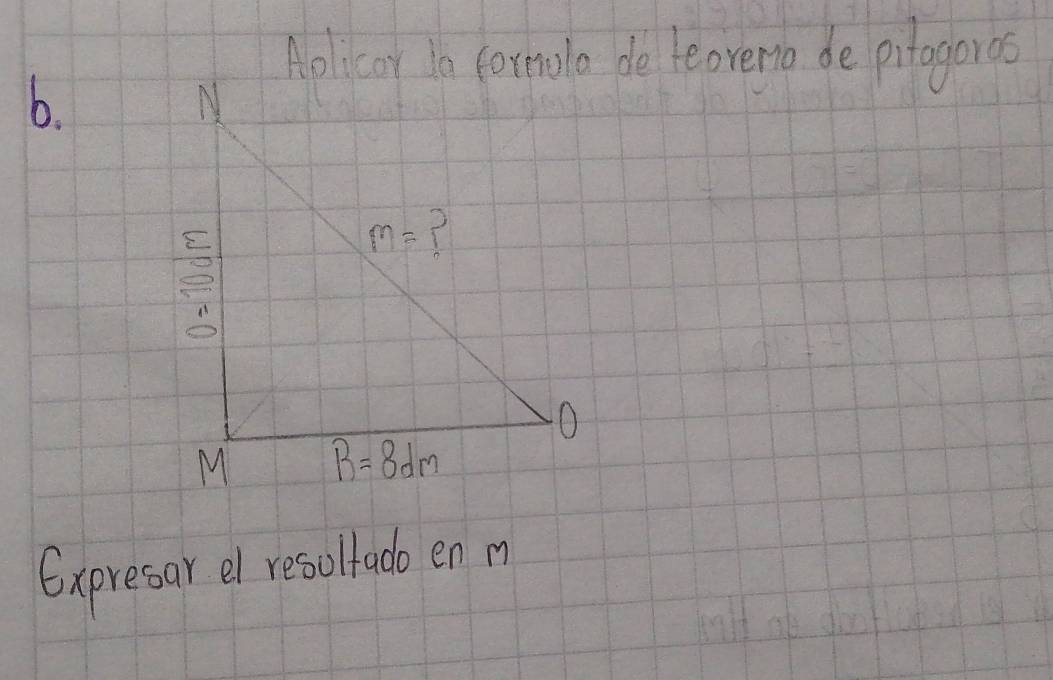 Aplicar la formula de teorema de pitagoras
b.
N
m = ?
O = 10 dm
O
M
B = 8 dm
Expresar el resultado en m